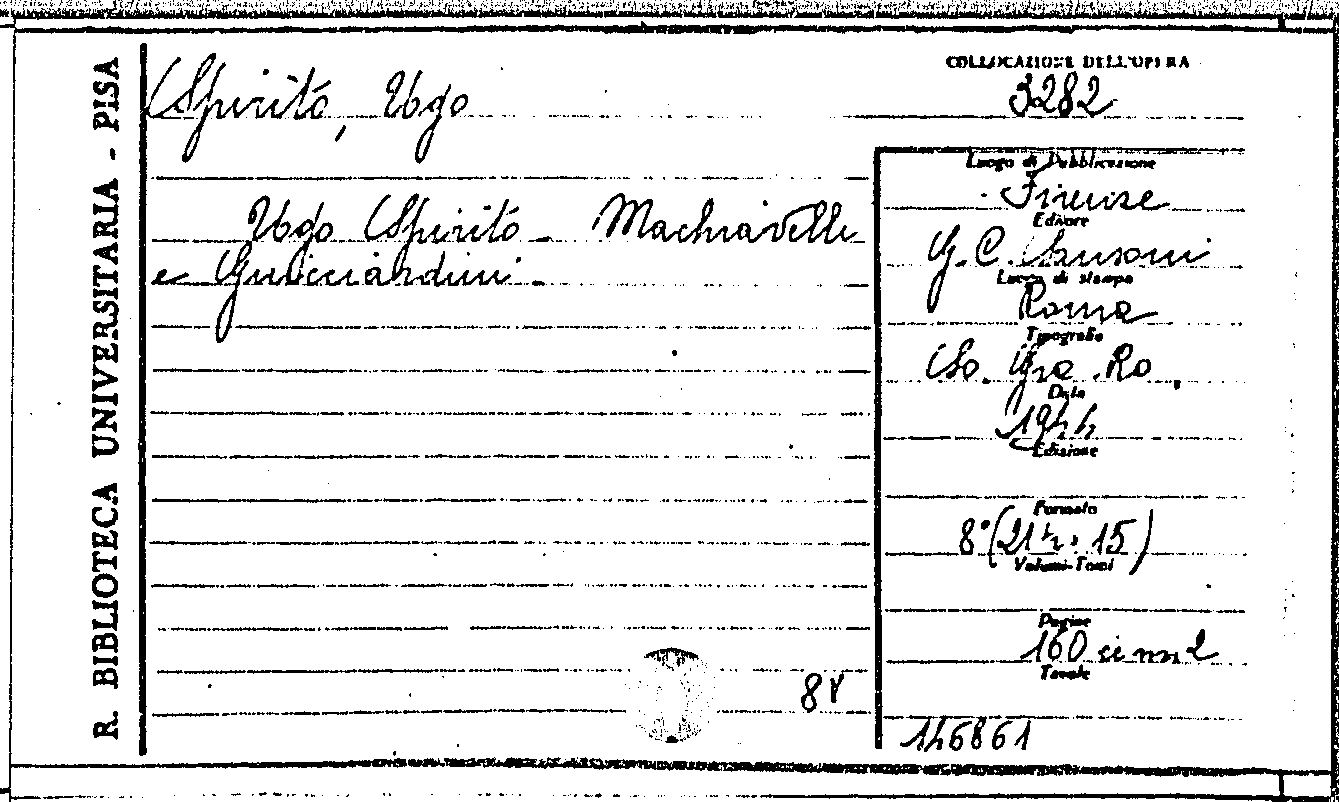 R. BIBLIOTECA UNIVERSITARIA - PISA
Spirito, Ugo
Ugo Spirito - Machiavelli
e Guicciardini -
COLLOCAZIONE DELL'OPERA
3282
Luogo di Pubblicazione
Firenze
Editore
G. C. Sansoni
Luogo di stampa
Roma
Tipografia
So. Gra. Ro.
Data
1944
Edizione
Formato
8° (21½ . 15)
Volumi-Tomi
Pagine
160 ci nn. 2
Tavole
84
146861